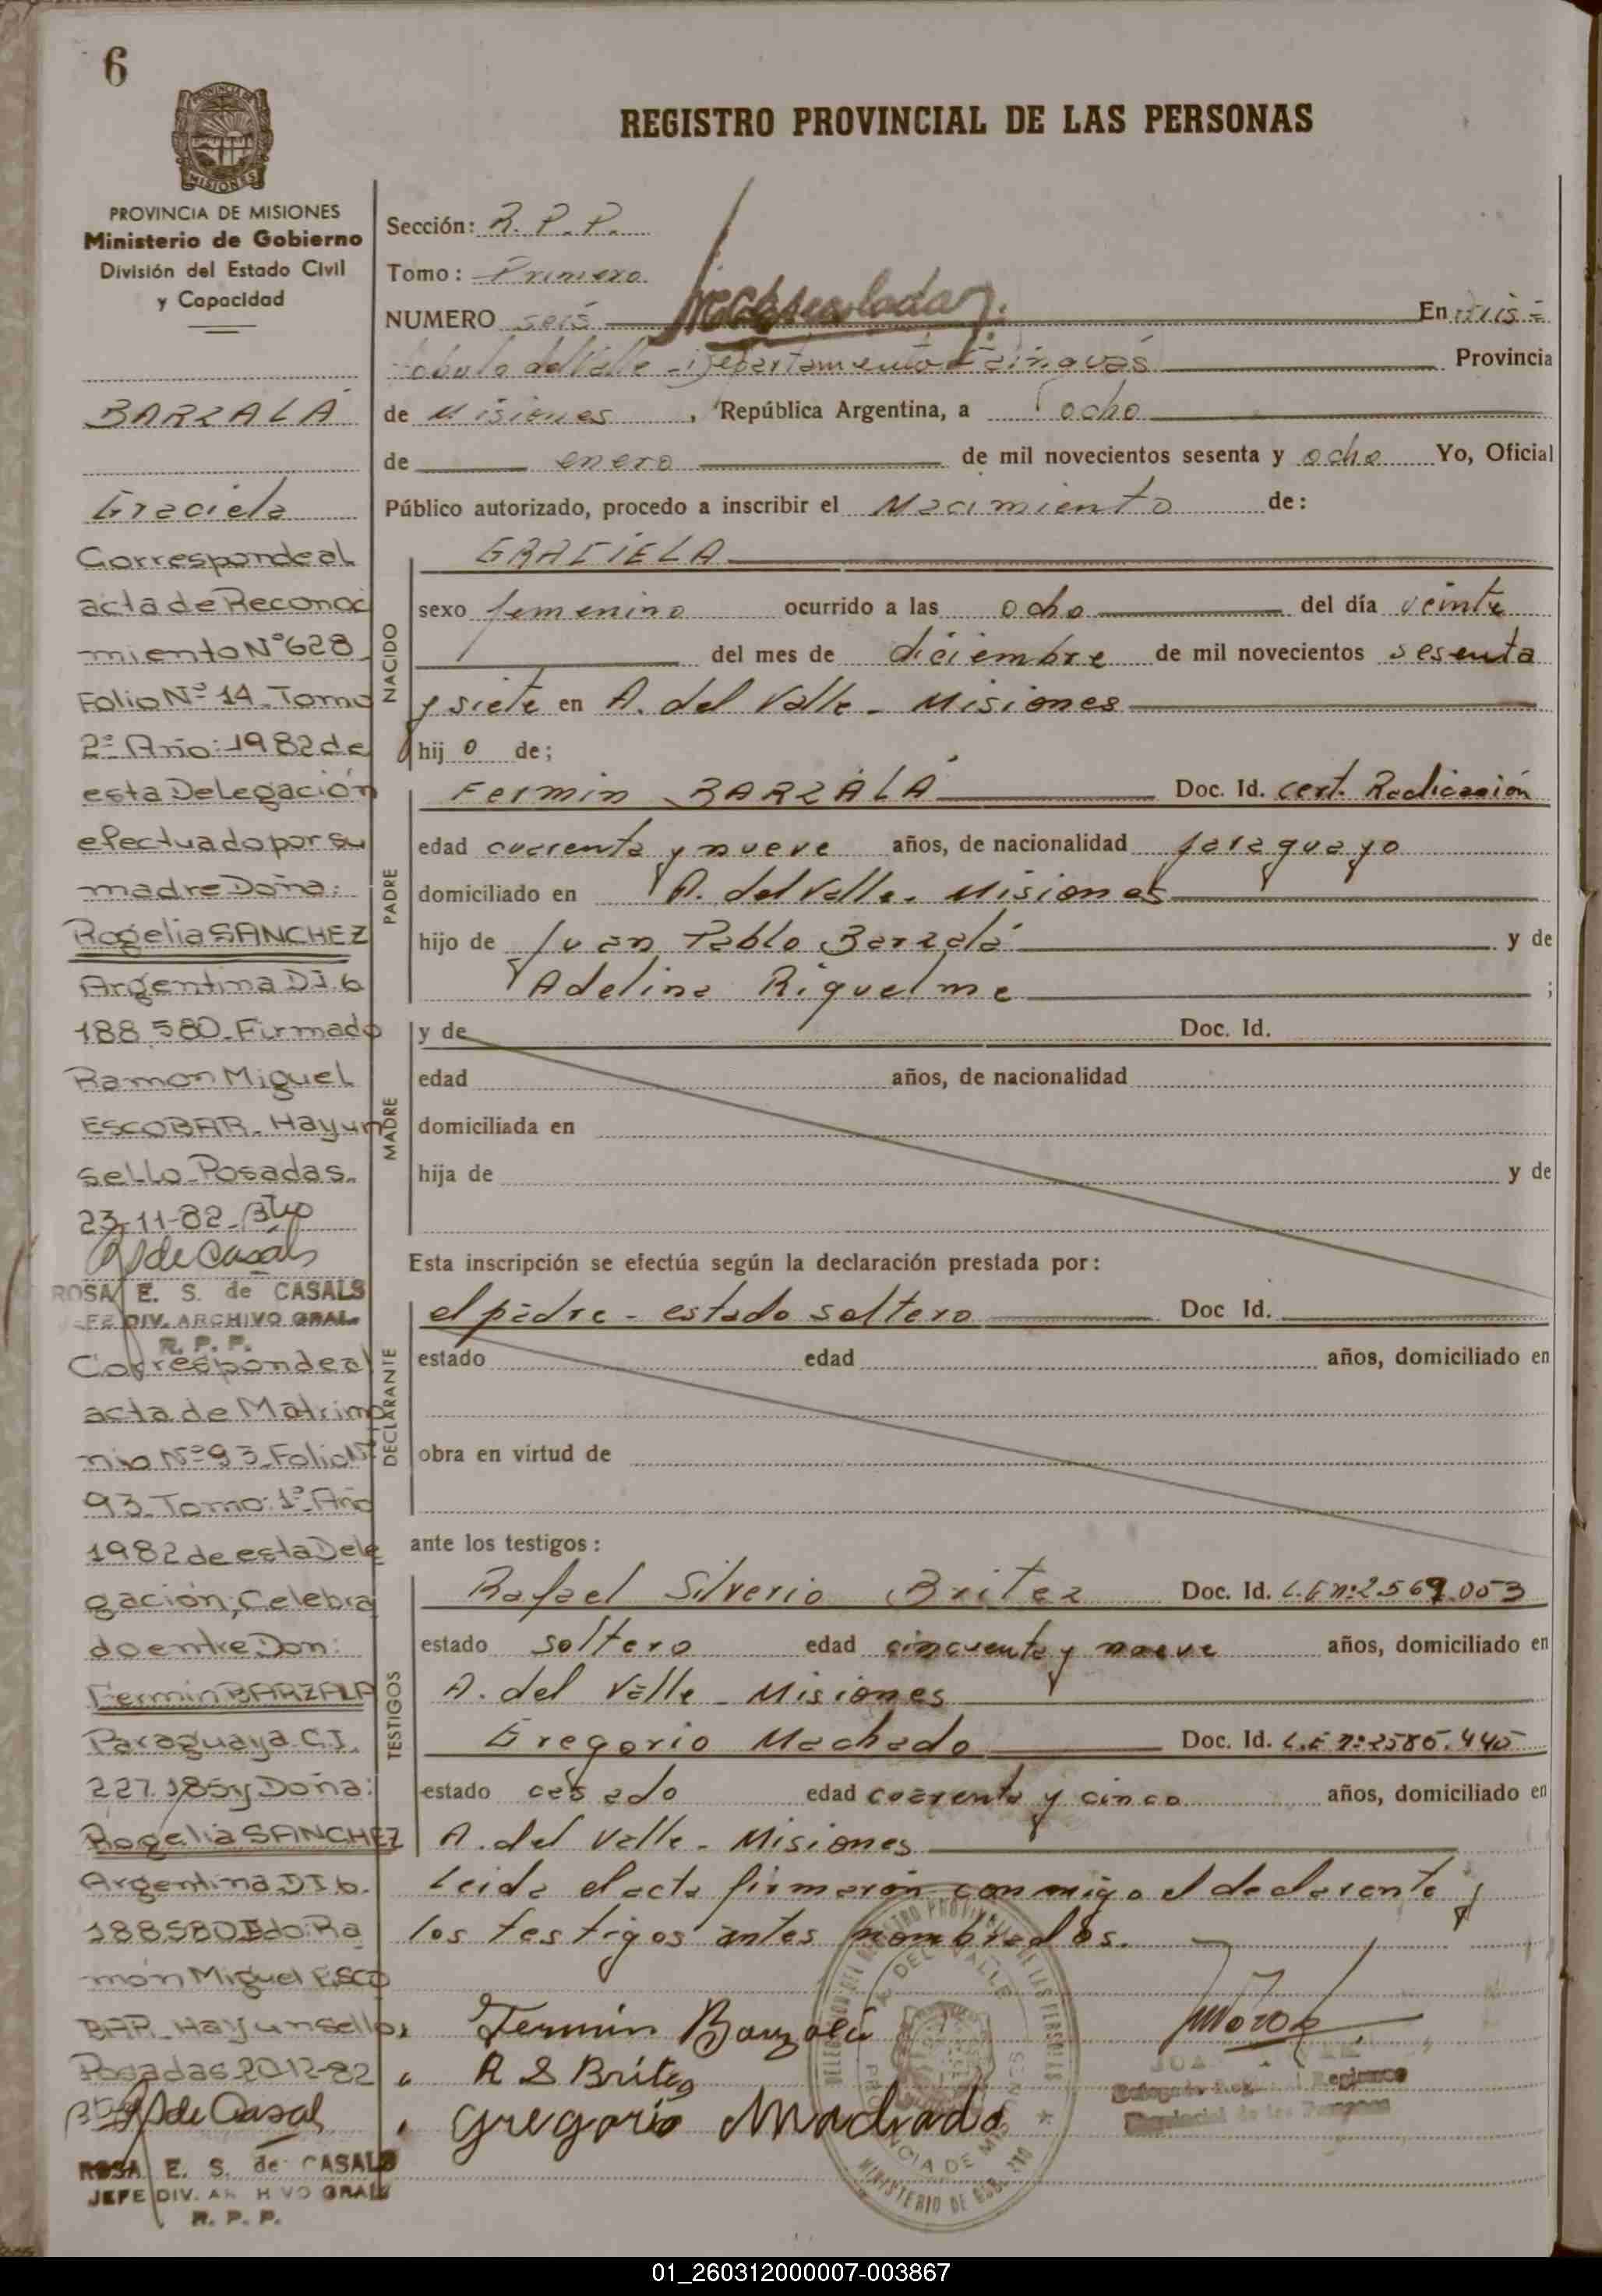 6
REGISTRO PROVINCIAL DE LAS PERSONAS
PROVINCIA DE MISIONES
MISIONES
PROVINCIA DE MISIONES
Ministerio de Gobierno
División del Estado Civil
y Capacidad
BARZALÁ
Graciela
Corresponde al
acta de Reconoci
miento Nº 628
Folio Nº 14. Tomo
2º Año: 1982 de
esta Delegación
efectuado por su
madre Doña:
Rogelia SANCHEZ
Argentina D.I. 6
188.580. Firmado
Ramon Miguel
ESCOBAR. Hay un
sello. Posadas.
23-11-82.
R S de Casals
ROSA E. S. de CASALS
JEFE DIV. ARCHIVO GRAL.
R. P. P.
Corresponde al
acta de Matrimo
nio Nº 93. Folio Nº
93. Tomo: 1º. Año
1982 de esta Dele
gación; Celebra
do entre Don:
Fermin BARZALA
Paraguaya C.I.
227.185 y Doña:
Rogelia SANCHEZ
Argentina D.I. 6.
188580 Fdo: Ra
món Miguel ESCO
BAR. Hay un sello.
Posadas 20-12-82
R S de Casals
ROSA E. S. de CASALS
JEFE DIV. ARCHIVO GRAL.
R. P. P.
Sección: R. P. P.
Tomo: Primero
NUMERO seis En
del Valle - Departamento Cainguás Provincia
de Misiones, República Argentina, a ocho
de enero de mil novecientos sesenta y ocho Yo, Oficial
Público autorizado, procedo a inscribir el Nacimiento de:
NACIDO
GRACIELA
sexo femenino ocurrido a las ocho del día veinte
del mes de diciembre de mil novecientos sesenta
y siete en A. del Valle - Misiones
hij o de;
PADRE
Fermin BARZALÁ Doc. Id. cert. Radicación
edad cuarenta y nueve años, de nacionalidad paraguayo
domiciliado en A. del Valle - Misiones
hijo de Juan Pablo Barzalá y de
Adelina Riquelme ;
MADRE
y de Doc. Id.
edad años, de nacionalidad
domiciliada en
hija de y de
Esta inscripción se efectúa según la declaración prestada por:
DECLARANTE
el padre - estado soltero Doc Id.
estado edad años, domiciliado en
obra en virtud de
ante los testigos:
TESTIGOS
Rafael Silverio Britez Doc. Id. L.E nº: 2.569.053
estado soltero edad cincuenta y nueve años, domiciliado en
A. del Valle - Misiones
Gregorio Machado Doc. Id. L.E nº: 2585.445
estado casado edad cuarenta y cinco años, domiciliado en
A. del Valle - Misiones
Leida el acta firmaron conmigo el declarante y
los testigos antes nombrados.
Fermin Barzalá
R S Britez
Gregorio Machado
Provincial de las Personas
PROVINCIA DE MISIONES
MINISTERIO DE
01_260312000007-003867